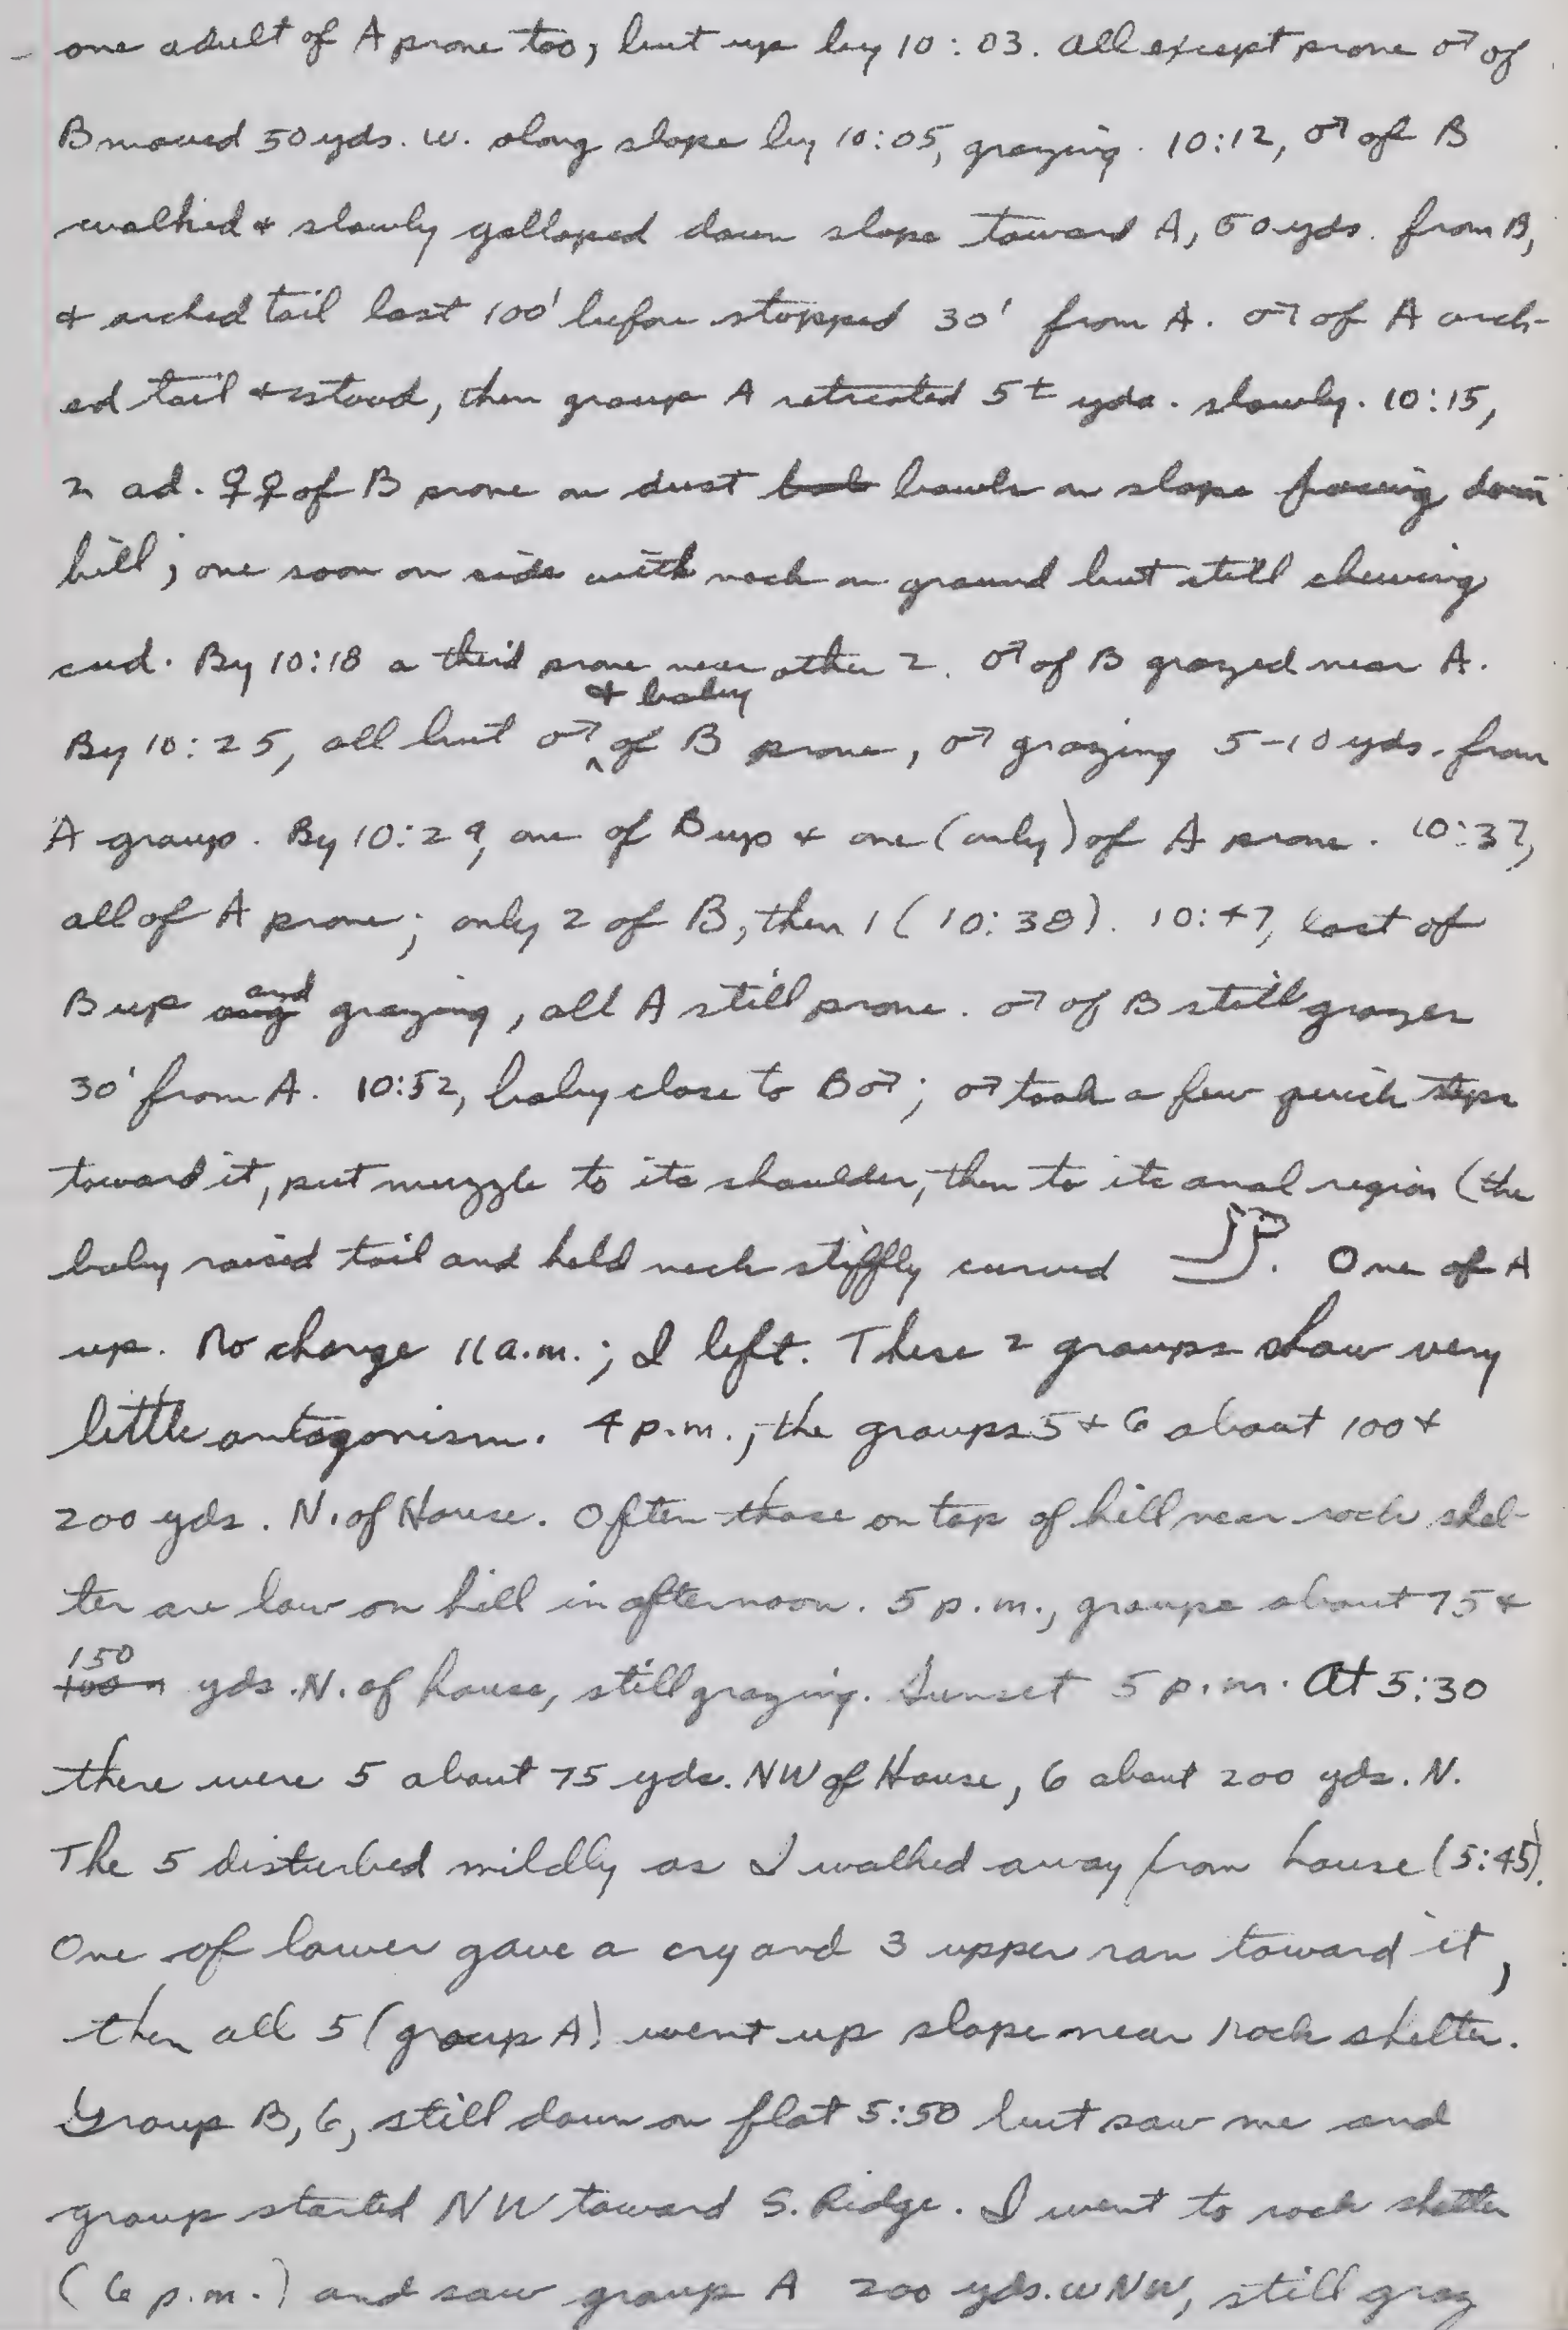 one adult of A prone too, but up by 10:03. All except prone ♂ of
B moved 50 yds. W. along slope by 10:05, grazing. 10:12, ♂ of B
walked & slowly galloped down slope toward A, 50 yds. from B,
& arched tail last 100' before stopped 30' from A. ♂ of A arch-
ed tail & stood, then group A retreated 5± yds. slowly. 10:15,
2 ad. ♀♀ of B prone on dust bowls on slope facing down
hill; one soon on side with neck on ground but still chewing
cud. By 10:18 a third prone near other 2. ♂ of B grazed near A.
By 10:25, all but ♂ & baby of B prone, ♂ grazing 5-10 yds. from
A group. By 10:29, one of B up & one (only) of A prone. 10:37,
all of A prone; only 2 of B, then 1 (10:38). 10:47, last of
B up and grazing, all A still prone. ♂ of B still grazes
30' from A. 10:52, baby close to B♂; ♂ took a few quick steps
toward it, put muzzle to its shoulder, then to its anal region (the
baby raised tail and held neck stiffly curved. One of A
up. No change 11 a.m.; I left. These 2 groups show very
little antagonism. 4 p.m., the groups 5 & 6 about 100 &
200 yds. N. of House. Often those on top of hill near rock shel-
ter are low on hill in afternoon. 5 p.m., groups about 75 &
150 yds. N. of house, still grazing. Sunset 5 p.m. At 5:30
there were 5 about 75 yds. NW of House, 6 about 200 yds. N.
The 5 disturbed mildly as I walked away from house (5:45).
One of lower gave a cry and 3 upper ran toward it,
then all 5 (group A) went up slope near rock shelter.
Group B, 6, still down on flat 5:50 but saw me and
group started NW toward S. Ridge. I went to rock shelter
(6 p.m.) and saw group A 200 yds. WNW, still graz